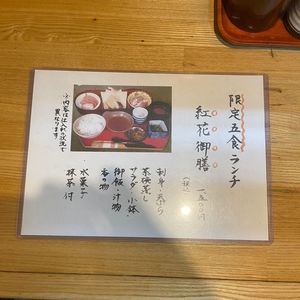 限定五食ランチ
紅花御膳
一、五〇〇円
(税込)
刺身・天ぷら
茶碗蒸し
サラダ・小鉢
御飯・汁物
香の物
水菓子
抹茶付
※内容は仕入れ状況で
異なります